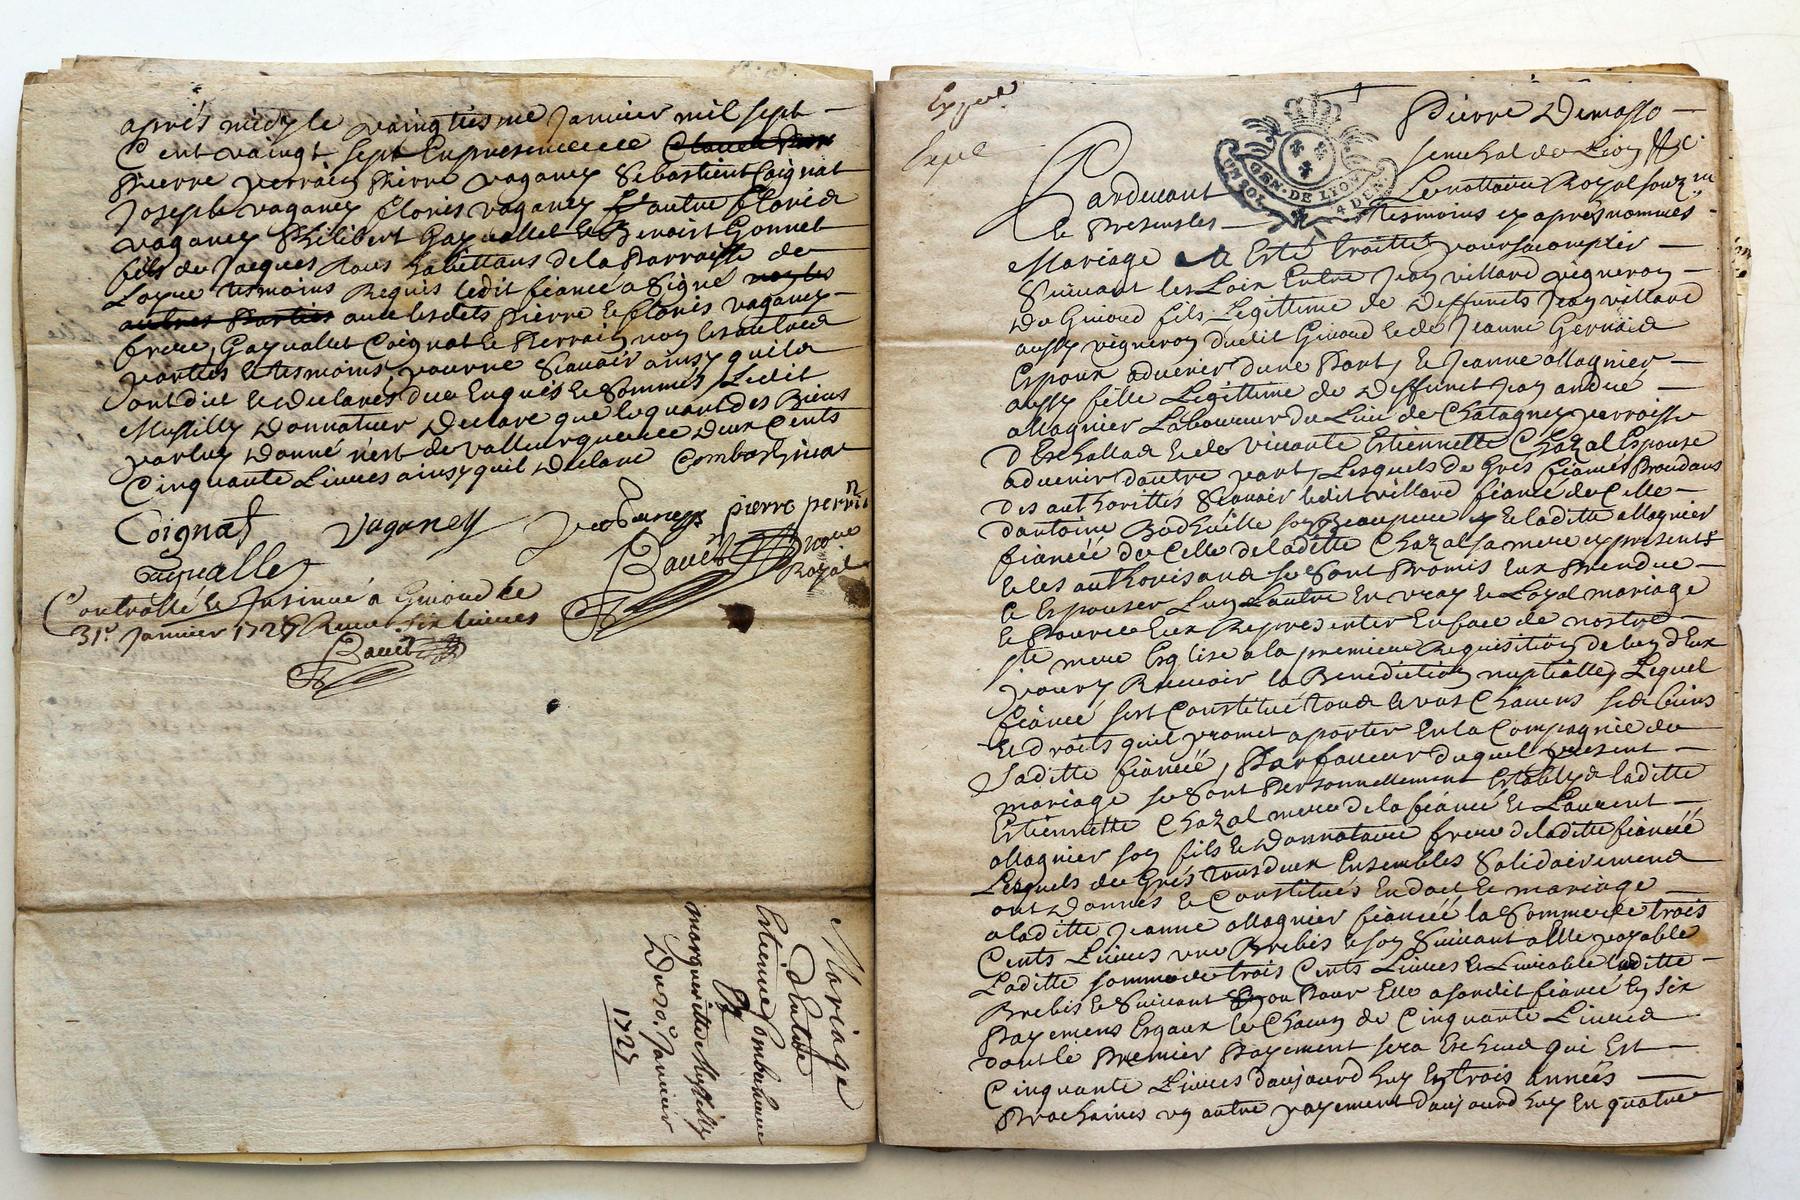 après midy le vaingtiesme Janvier mil sept
Cent vaingt sept En presence de
Pierre perrain Pierre vaganey Sebastient Coignat
Joseph vaganey floris vaganey & autre floris
vaganey Philibert Gaquallet & Benoist Gonnet
fils de Jacques tous habittans de la Parroisse de
tesmoins Requis ledit fiancé a Signé
autres Parties avec lesdits Pierre & floris vaganey
frere, Gaquallet Coignat & Perrain non les autres
parties & tesmoins pour ne Scavoir ainsy quils
ont dit & declarés de ce Enquis & Sommés Ledit
Donnateur Declare que le quart des Biens
par luy Donné n'est de valleur que de Deux Cents
Cinquante Livres ainsy quil Declare
Coignat vaganey pierre perrin
Gaquallet Bauét no.re Royal
Controllé & Insinué à Givord le
31.e Janvier 1727 Receu six livres
Bauét
Mariage
d'Entre
Estienne
Et
margueritte
Du 20.e Janvier
1727
Expié
Expié
Pierre Demasso
senechal de Lion &c
UN SOL GEN. DE LYON 4 DEN.
Pardevant Le nottaire Royal souz.né
& Presents Les tesmoins cy après nommés
Mariage A Esté traitté pour s'acomplir
Suivant les Loix Entre Jean villard vigneron
De Givord fils Legittime de Deffunts Jean villard
aussy vigneron dudit Givord & de Jeanne Gervais
Espoux advenir d'une Part, & Jeanne Magnier
aussy fille Legittime de Deffunct Jean andré
Magnier Laboureur du Lieu de Chatagney parroisse
D'Eschallas & de vivante Estiennette Chazal Espouse
advenir d'autre part, Lesquels de Grés fiancés Procédans
des authorittés Scavoir ledit villard fiancé de Celle
d'antoine son Beaupere & laditte Magnier
fiancée de Celle de laditte Chazal sa mere cy presents
& les authorisans se Sont Promis Eux Prendre
& Espouser L'un L'autre En vray & Loyal mariage
& Pour ce Eux Representer En face de nostre
ste mere Esglise a la premiere Requisition de l'un d'Eux
pour y Recevoir la Benediction nuptialle, Lequel
fiancé s'est Constitué tous & uns Chacuns ses biens
& droits quil promet aporter En la Compagnie de
Saditte fiancée, En faveur duquel present
mariage se Sont Personnellement Establys laditte
Estiennette Chazal mere de la fiancée & Laurent
Magnier son fils & Donnataire frere de laditte fiancée
Lesquels de Grés tous deux Ensembles Solidairement
ont Donnés & Constitués En dot & mariage
a laditte Jeanne Magnier fiancée la Somme de trois
Cents Livres une Brebis & son Suivant Elle payable
Laditte somme de trois Cents Livres & Livrable laditte
Brebis & Suivant ou Pour Elle a son dit fiancé En six
Payemens Esgaux de Chacun de Cinquante Livres
dont le Premier Payement sera & qui Est
Cinquante Livres d'aujourd huy En trois années
Prochaines un autre payement d'aujourd huy En quatre